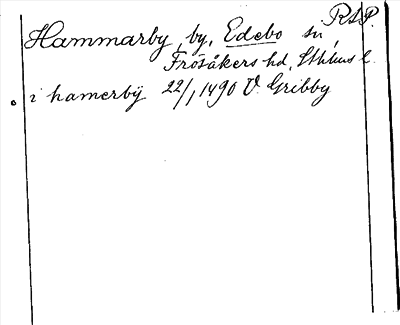 RAP.
Hammarby, by, Edebo sn,
Frösåkers hd, Sthlms l.
i hamerbÿ 22/1 1490 V. Gribby